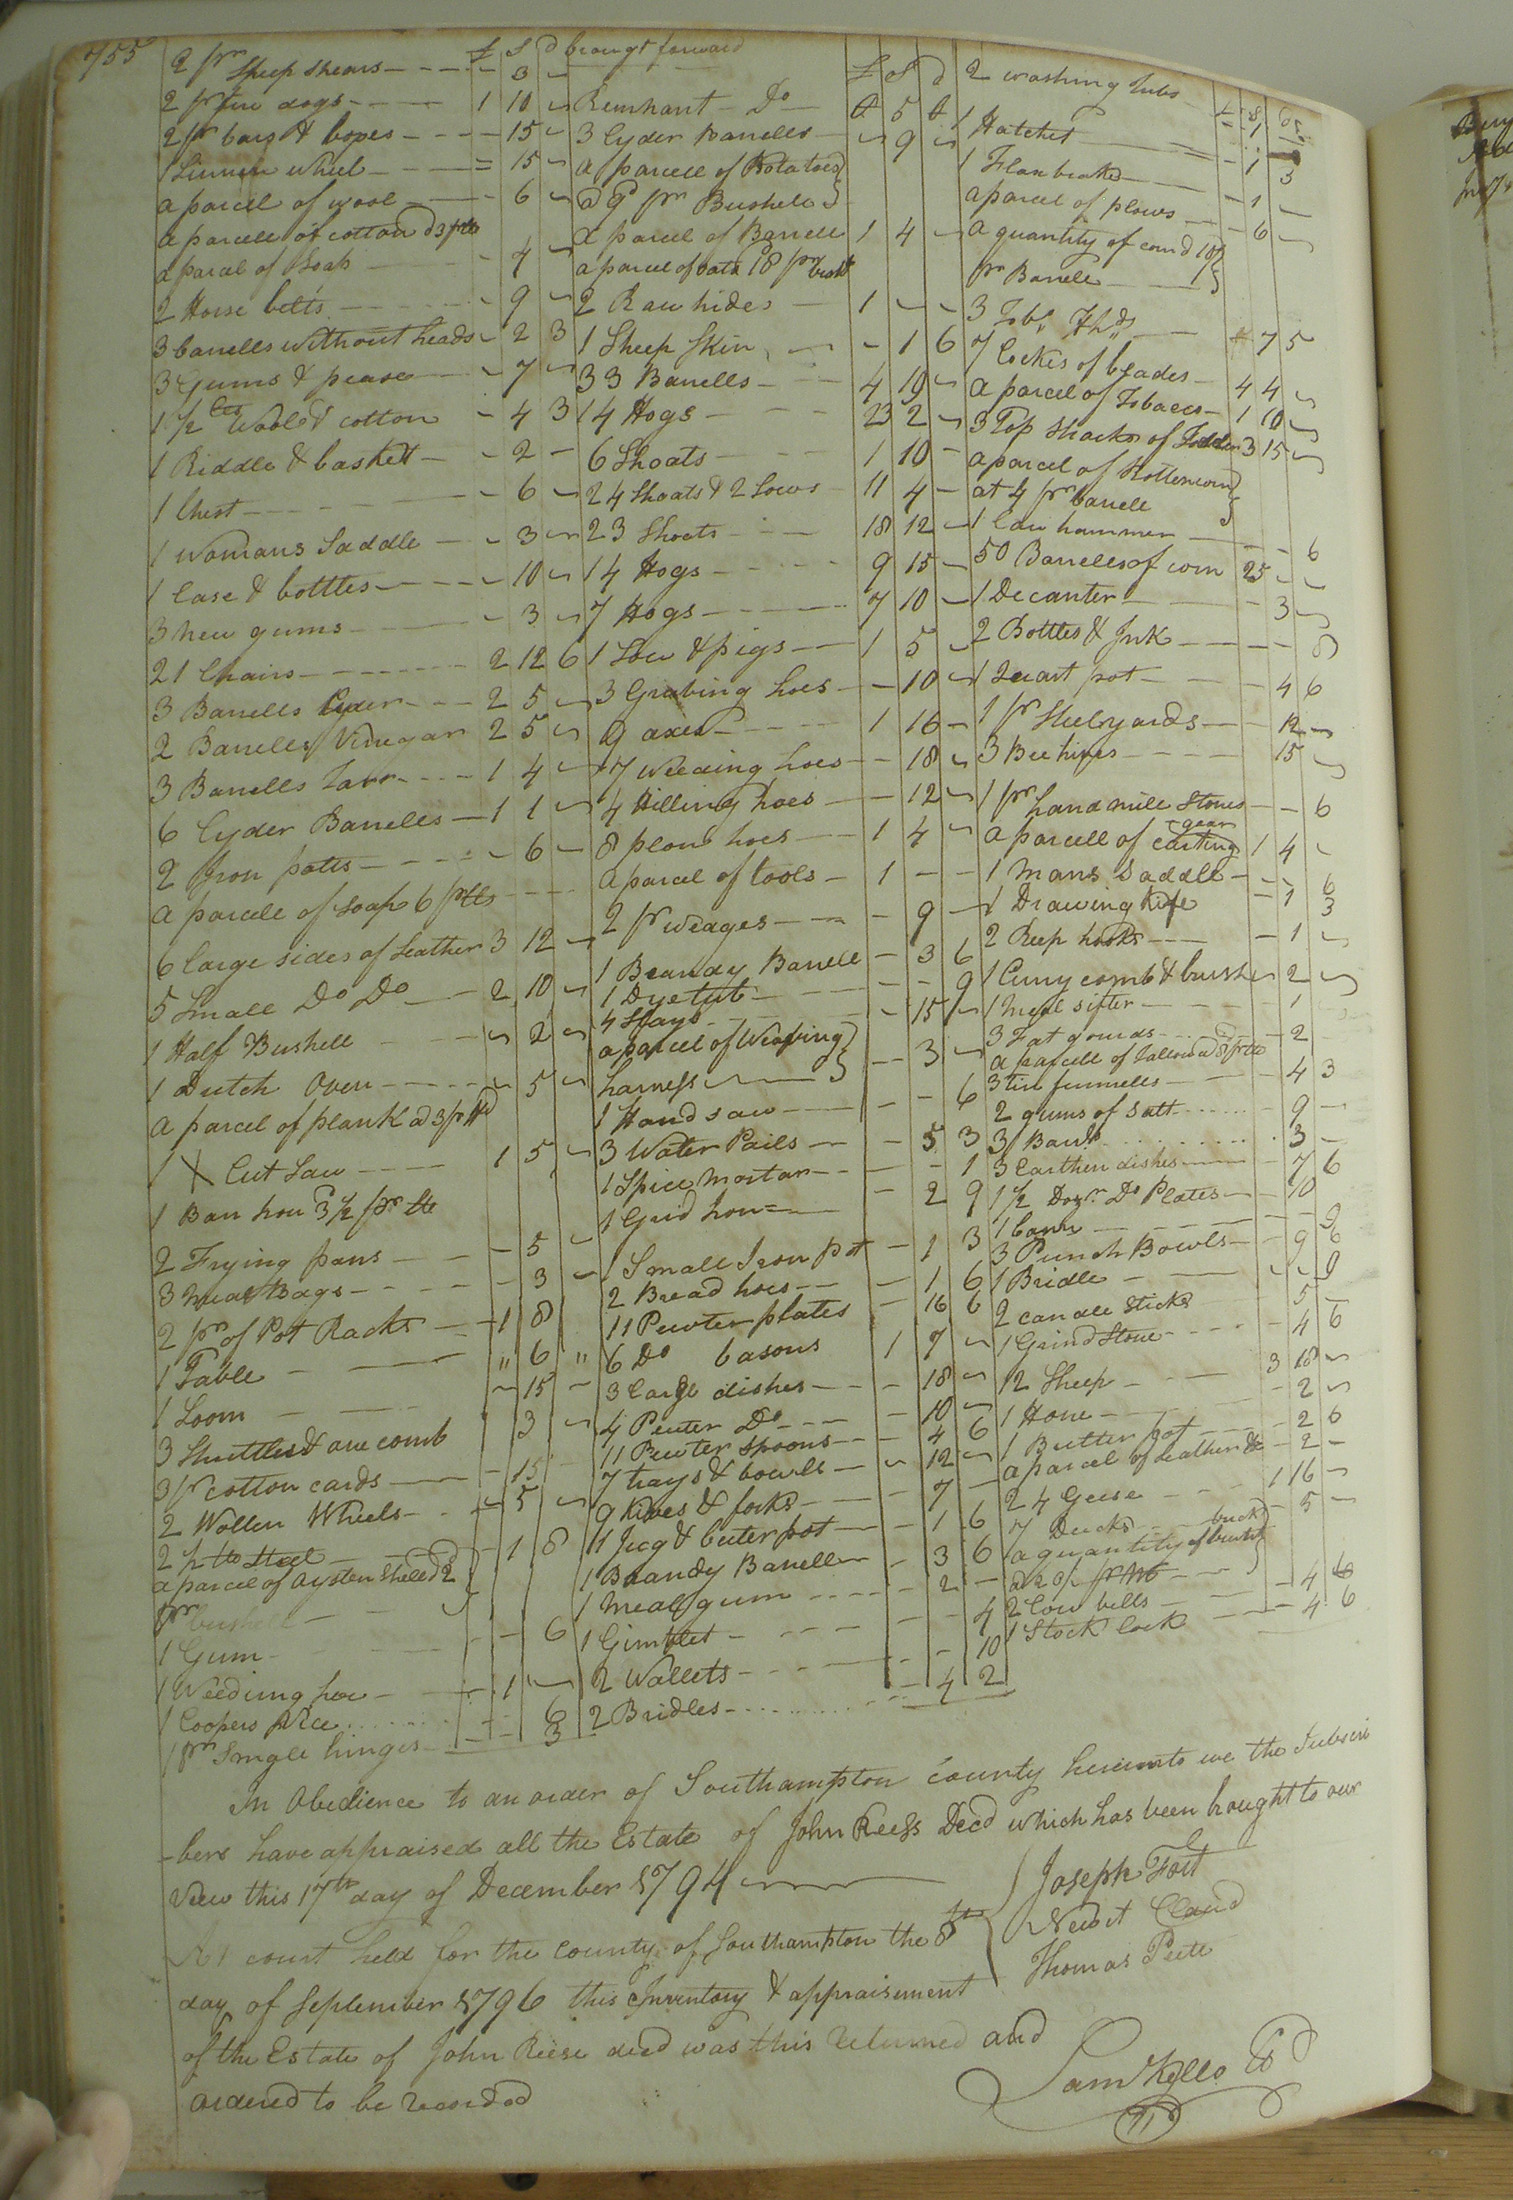 755
£ S d
2 pr Sheep shears - - - - - 3 -
2 pr fire dogs - - - - 1 10 -
2 pr bars & hopes - - - - 15 -
1 Linnen wheel - - - = 15 -
a parcel of wool - - - - 6 -
a parcell of cotton @ 3 p lb
a parcel of Soap - - - - 4 -
2 Horse bells - - - - 9 -
3 barrells without heads - 2 3
3 Gums & pease - - - 7 -
1 1/2 lbs Wool & cotton - 4 3
1 Riddle & baskett - - 2 -
1 Chest - - - - 6 -
1 womans Saddle - - 3 -
1 Case & bottles - - - - 10 -
3 new gums - - - 3 -
21 Chairs - - - - - 2 12 6
3 Barrells Cyder - - - 2 5 -
2 Barrells Vinegar 2 5 -
3 Barrells Tarr - - - 1 4 -
6 Cyder Barrells - 1 1 -
2 Iron potts - - - - - 6 -
a parcell of soap 6 p lb - - -
6 large sides of Leather 3 12 -
5 Small Do Do - - 2 10 -
1 Half Bushell - - - 2 -
1 Dutch Oven - - - - - 5 -
a parcel of plank @ 3 p Hd
1 X Cut Saw - - - 1 5 -
1 Barr Iron 3 1/2 pr lb
2 Frying pans - - - 5 -
3 meal Bags - - - - 3 -
2 pr of Pot Racks - - 1 8
1 Table - - " 6 "
1 Loom - - - 15 -
3 Shuttles & one comb 3 -
3 pr cotton cards - - 15 -
2 Wollen Wheels - - - 5 -
2 1/2 lb Steel - - - 1 8
a parcel of Oyster Shells @ 2
pr bushell - -
1 Gum - - - - 6
1 Weeding hoe - - - 1 -
1 Coopers Vice - - - 6
1 pr Smgle hinges - - - 3
brougt forward
£ S d
Remnant - Do - 5
3 Cyder Barrells - - 9 -
a parcell of Potatoes
@ 9 pr Bushell
a parcel of Barrells 1 4 -
a parcel of oats 18 pr bushl
2 Raw hides - 1 - -
1 Sheep Skin - - - 1 6
33 Barrells - - - 4 19 -
14 Hogs - - - - 23 2 -
6 Shoats - - - - 1 10 -
24 Shoats & 2 Sows - 11 4 -
23 Shoats - - - 18 12 -
14 Hogs - - - - - 9 15 -
7 Hogs - - - - - 7 10 -
1 Sow & pigs - - 1 5 -
3 Grubing hoes - - 10 -
9 axes - - - - 1 16 -
17 Weeding hoes - - 18 -
4 Hilling hoes - - 12 -
8 plow hoes - - 1 4 -
a parcel of tools - 1 - -
2 pr wedges - - - - 9 -
1 Brandy Barrell - 3 6
1 Dye tub - - - - - 9
4 Slays - - - - - 15 -
a parcel of Weaving
harness - - - 3 -
1 Hand saw - - - - 6
3 Water Pails - - - 5 3
1 Spice mortar - - - - 1
1 Grid Iron - - - 2 9
1 Small Iron pot - 1 3
2 Bread hoes - - - 1 6
11 Pewter plates - 16 6
6 Do basons 1 7 -
3 large dishes - - - 18 -
4 Peuter Do - - - - 10 -
11 Pewter spoons - - - 4 6
7 trays & bowls - - 12 -
9 Knives & forks - - - 7 -
11 Jug & buter pot - - - 1 6
1 Brandy Barrell - - 3 6
1 meal gum - - - - - 2 -
1 Gimblet - - - - 4
2 Wallets - - - - 10
2 Bridles - - - - - 4 2
2 washing tubs
£ S d
1 Hatchet - - - 1
1 Flax brake - - - 1 3
a parcel of plows - - 1 -
a quantity of corn @ 10/ - 6 -
pr Barrell - - -
3 Tobo Hhds - - 7 5
7 lockes of blades - 4 4 -
a parcel of Tobacco - 1 10 -
3 Top Shacks of Fodder 3 15 -
a parcel of Rottencorn
at 4 pr barrell
1 Claw hammer - - - 6
50 Barrells of corn 25 - -
1 Decanter - - - - 3 -
2 Bottles & Ink - - - - 8
1 Quart pot - - - 4 6
1 pr Steelyards - - - 12 -
3 Bee hives - - - - 15 -
1 pr hand mill Stones - - 6
a parcell of carting gear 1 4 -
1 Mans Saddle - - - 6
1 Drawing Knife - 1 3
2 Reep hooks - - - 1 -
1 Curry comb & brush - 2 -
1 Meal sifter - - - - 1
3 Fat gourds - - - - 2 -
a parcell of Tallow @ 8 p lb
3 tin funnells - - - - 4 3
2 gums of Salt - - - - 9 -
3 Barrl - - - - - 3 -
3 Earthen dishes - - - 7 6
1 1/2 Dozn Do Plates - - 10
1 Cann - - - - - 9
3 Punch Bowls - - 9 6
1 Bridle - - - - 9
2 candle Sticks 5 -
1 Grind Stone - - - - 4 6
12 Sheep - - - 3 18 -
1 Hone - - - - 2 -
1 Butter pot - - - 2 6
a parcel of Leather &c - 2 -
24 Geese - - - 1 16 -
7 Ducks - - - 5 -
a quantity of
2 Cow bells - - - 4 6
1 Stock lock - - - 4 6
In Obedience to an order of Southampton County hereunto we the Subscri
-bers have appraised all the Estate of John Reess Decd which has been brought to our
view this 17th day of December 1794
Joseph Fort
Newit Claud
Thomas Peete
At court held for the county of Southampton the 8th
day of September 1796 this Inventory & appraisement
of the Estate of John Reese decd was this returned and
ordered to be recorded
Saml Kello